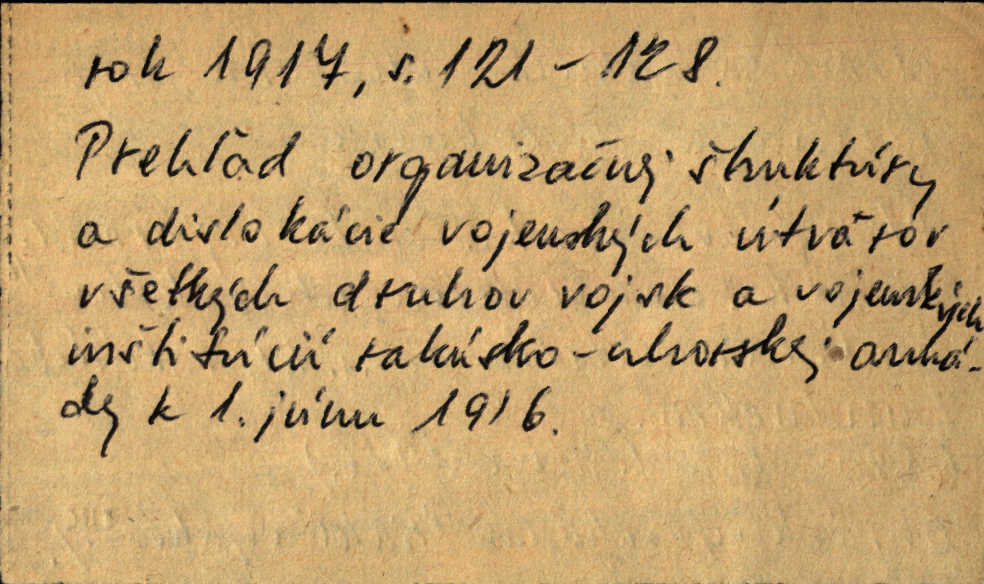 rok 1917, s. 121-128.
Prehľad organizačnej štruktúry
a dislokácie vojenských útvarov
všetkých druhov vojsk a vojenských
inštitúcií rakúsko-uhorskej armá-
dy k 1. júnu 1916.